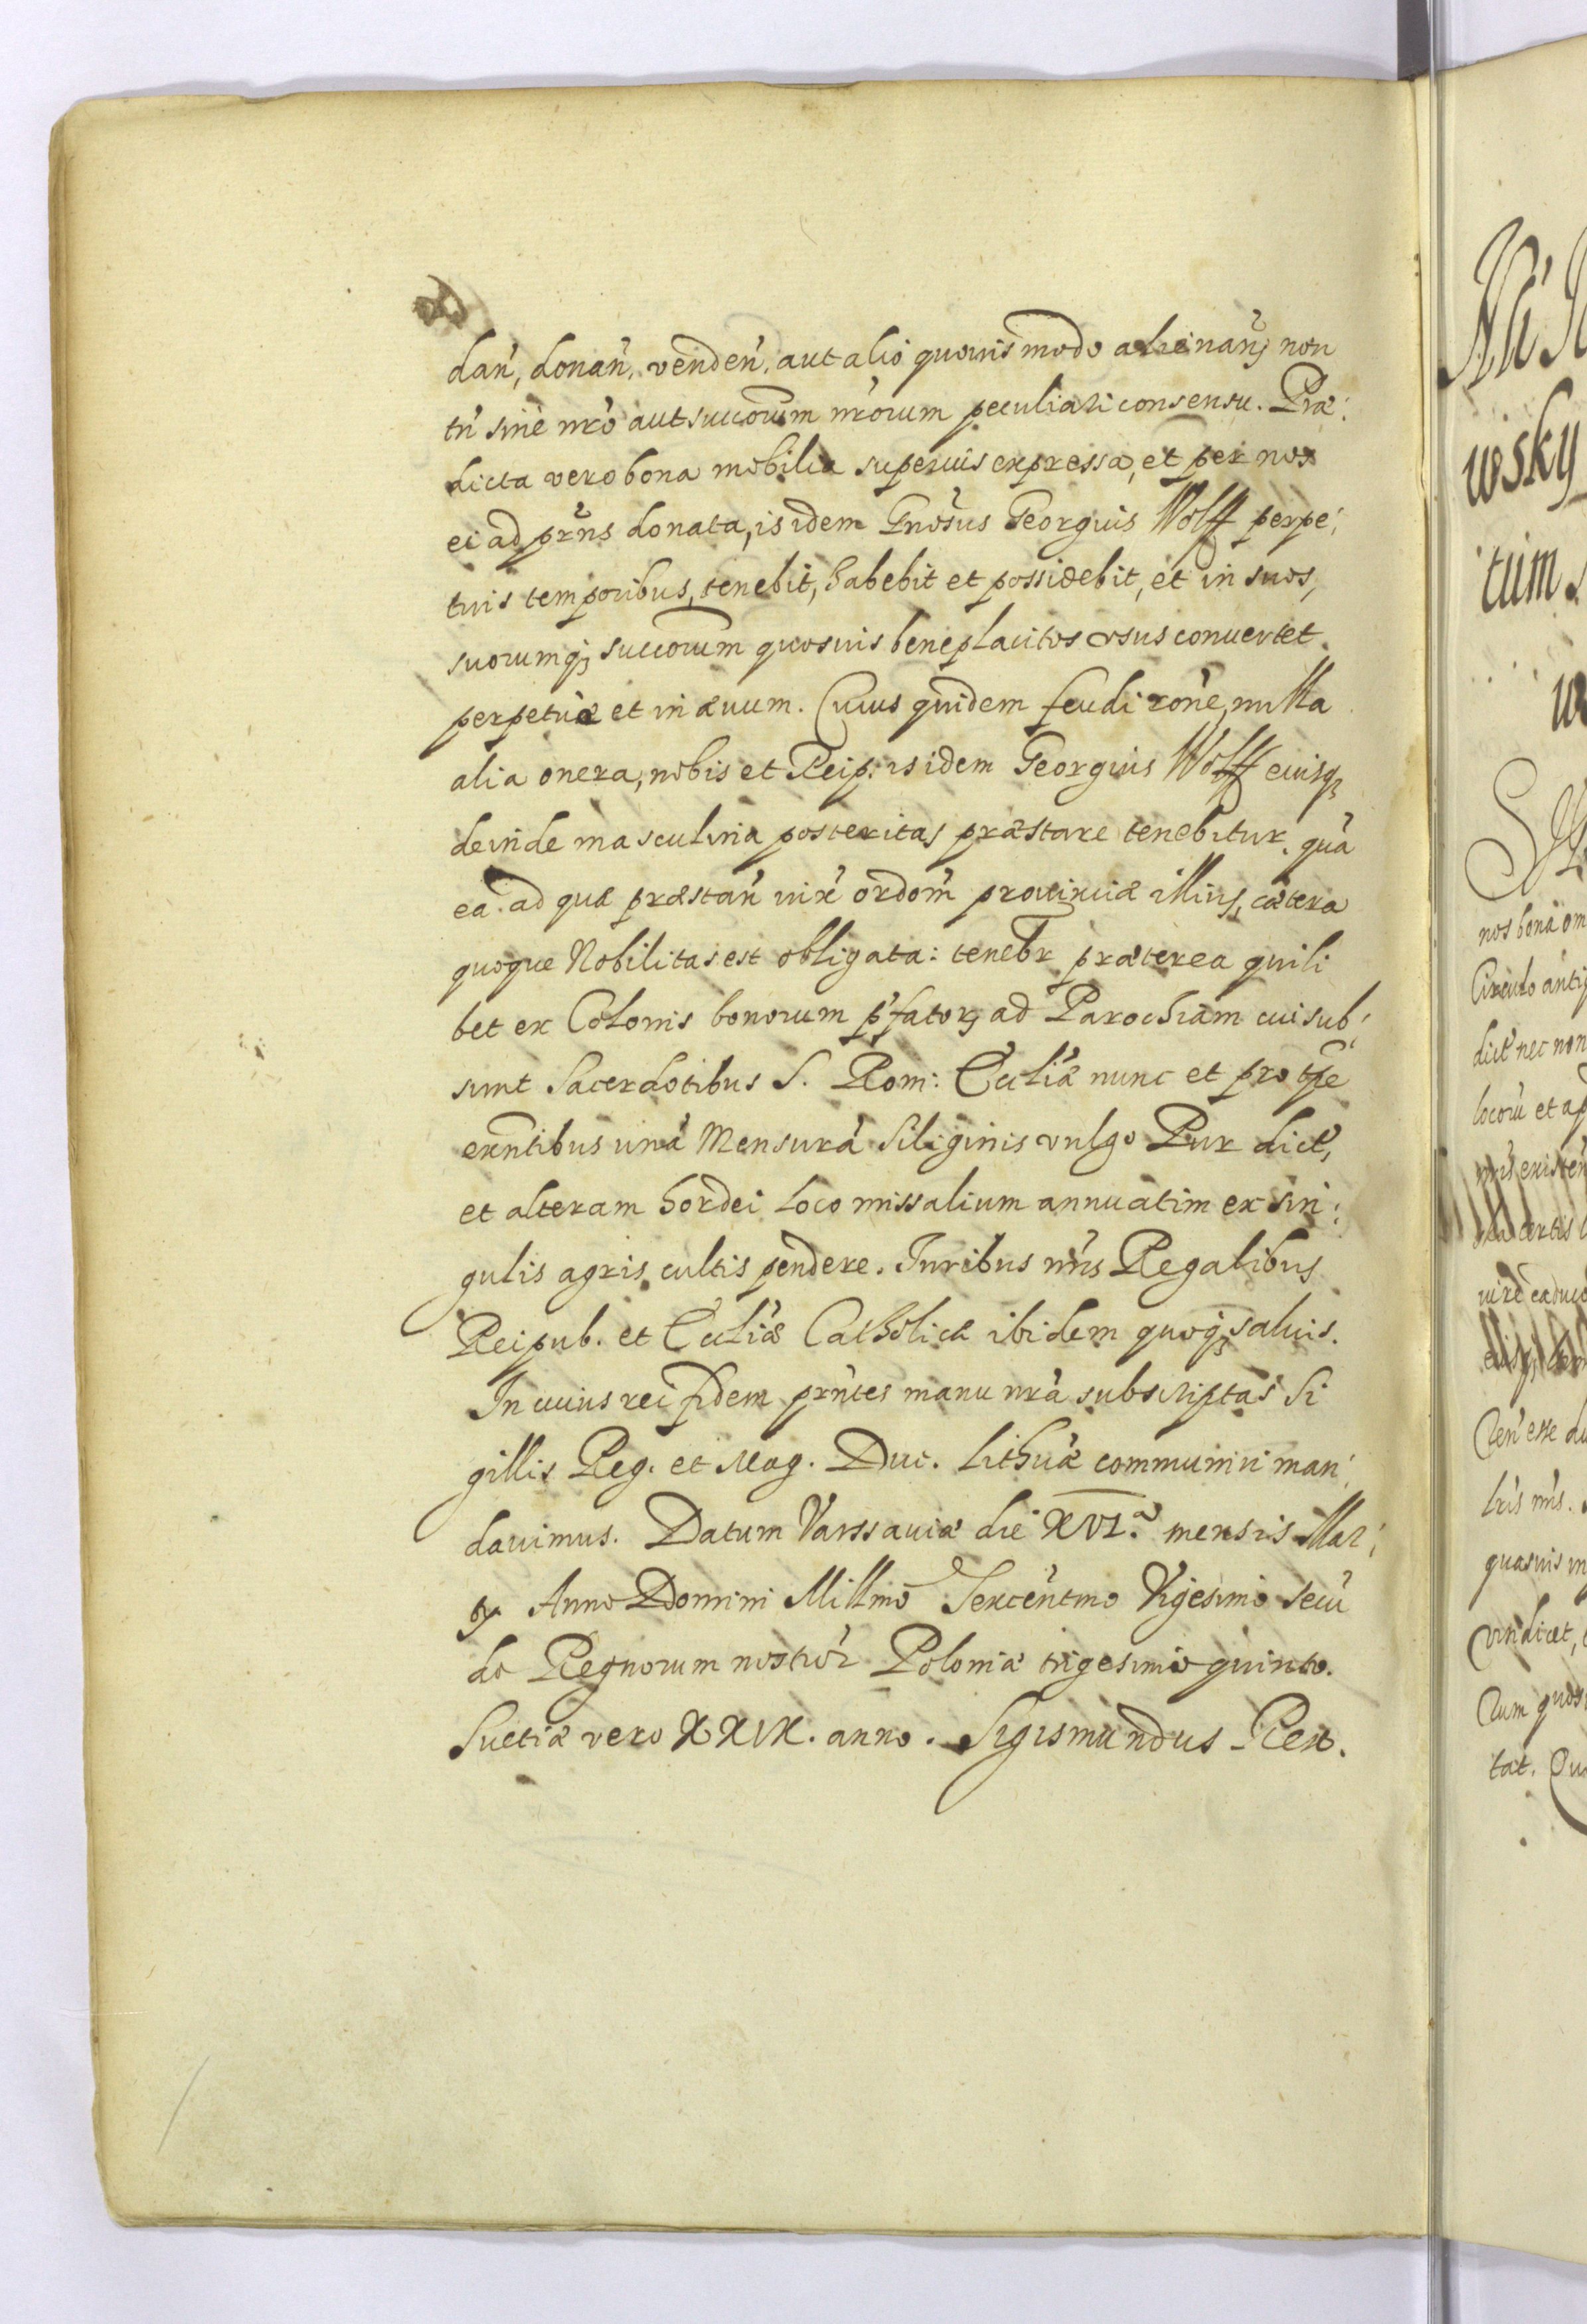 dan̄, donan̄, venden̄, aut alio quouis modo alienan̄, non
tn̄ sine nr̄o aut succorum nr̄orum peculiari consensu. Præ:
dicta vero bona mobilia superius expressa, et per nos
ei ad præns donata, is idem Gnosus Georgius Wolff perpe:
tuis temporibus, tenebit, habebit et possidebit, et in suos,
suorumq; succorum quosuis beneplacitos vsus conuertet
perpetuæ et in æuum. Cuius quidem feudi rōne, nulla
alia onera, nobis et Reip: is idem Georgius Wolff eiusq;
deinde masculina posteritas præstare tenebitur, quā
ea. ad quæ præstan̄ vix̄ ordom̄ prouinciæ illius, cætera
quoque Nobilitas est obligata: tenebr præterea quili
bet ex Colonis bonorum p̄fator; ad Parochiam cui sub:
sunt Sacerdotibus S. Rom: Eccliæ nunc et pro tp̄e
exn̄tibus unā Mensurā Siliginis vulgo Pur dict,
et alteram hordei loco missalium annuatim ex sin:
gulis agris cultis pendere. Iuribus nr̄is Regalibus
Reipub. et Eccliæ Catholicæ ibidem quoq; saluis.
In cuius rei fidem prn̄tes manu nr̄a subscriptas Si
gillis Reg. et Mag. Duc. Lithuæ communiri man:
dauimus. Datum Varssauiæ die XVI.ª mensis Mar:
ty Anno Domini Millmo Sexcentmo Vigesimo secū
do Regnorum nostror Poloniæ trigesimo quinto.
Suetiæ vero XXIX. anno. Sigismundus Rex.
wsky
tum
nos bona om
Circulo anti
dict nec non
locorū et ap
quasuis
vindicet,
tat.